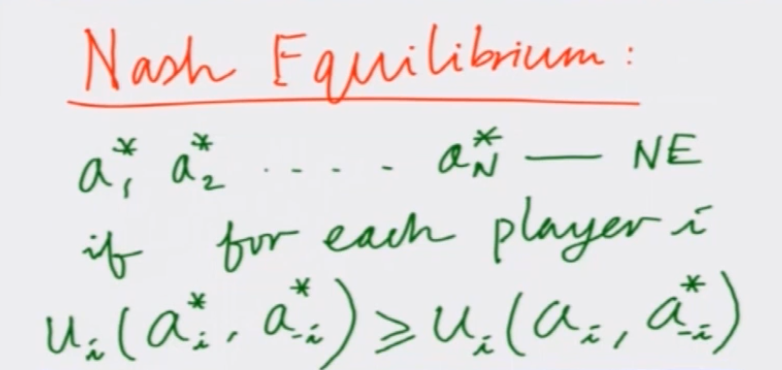 Nash Equilibrium :
a₁* a₂* ..... a_N* — NE
if for each player i
u_i(a_i*, a_-i*) ≥ u_i(a_i, a_-i*)